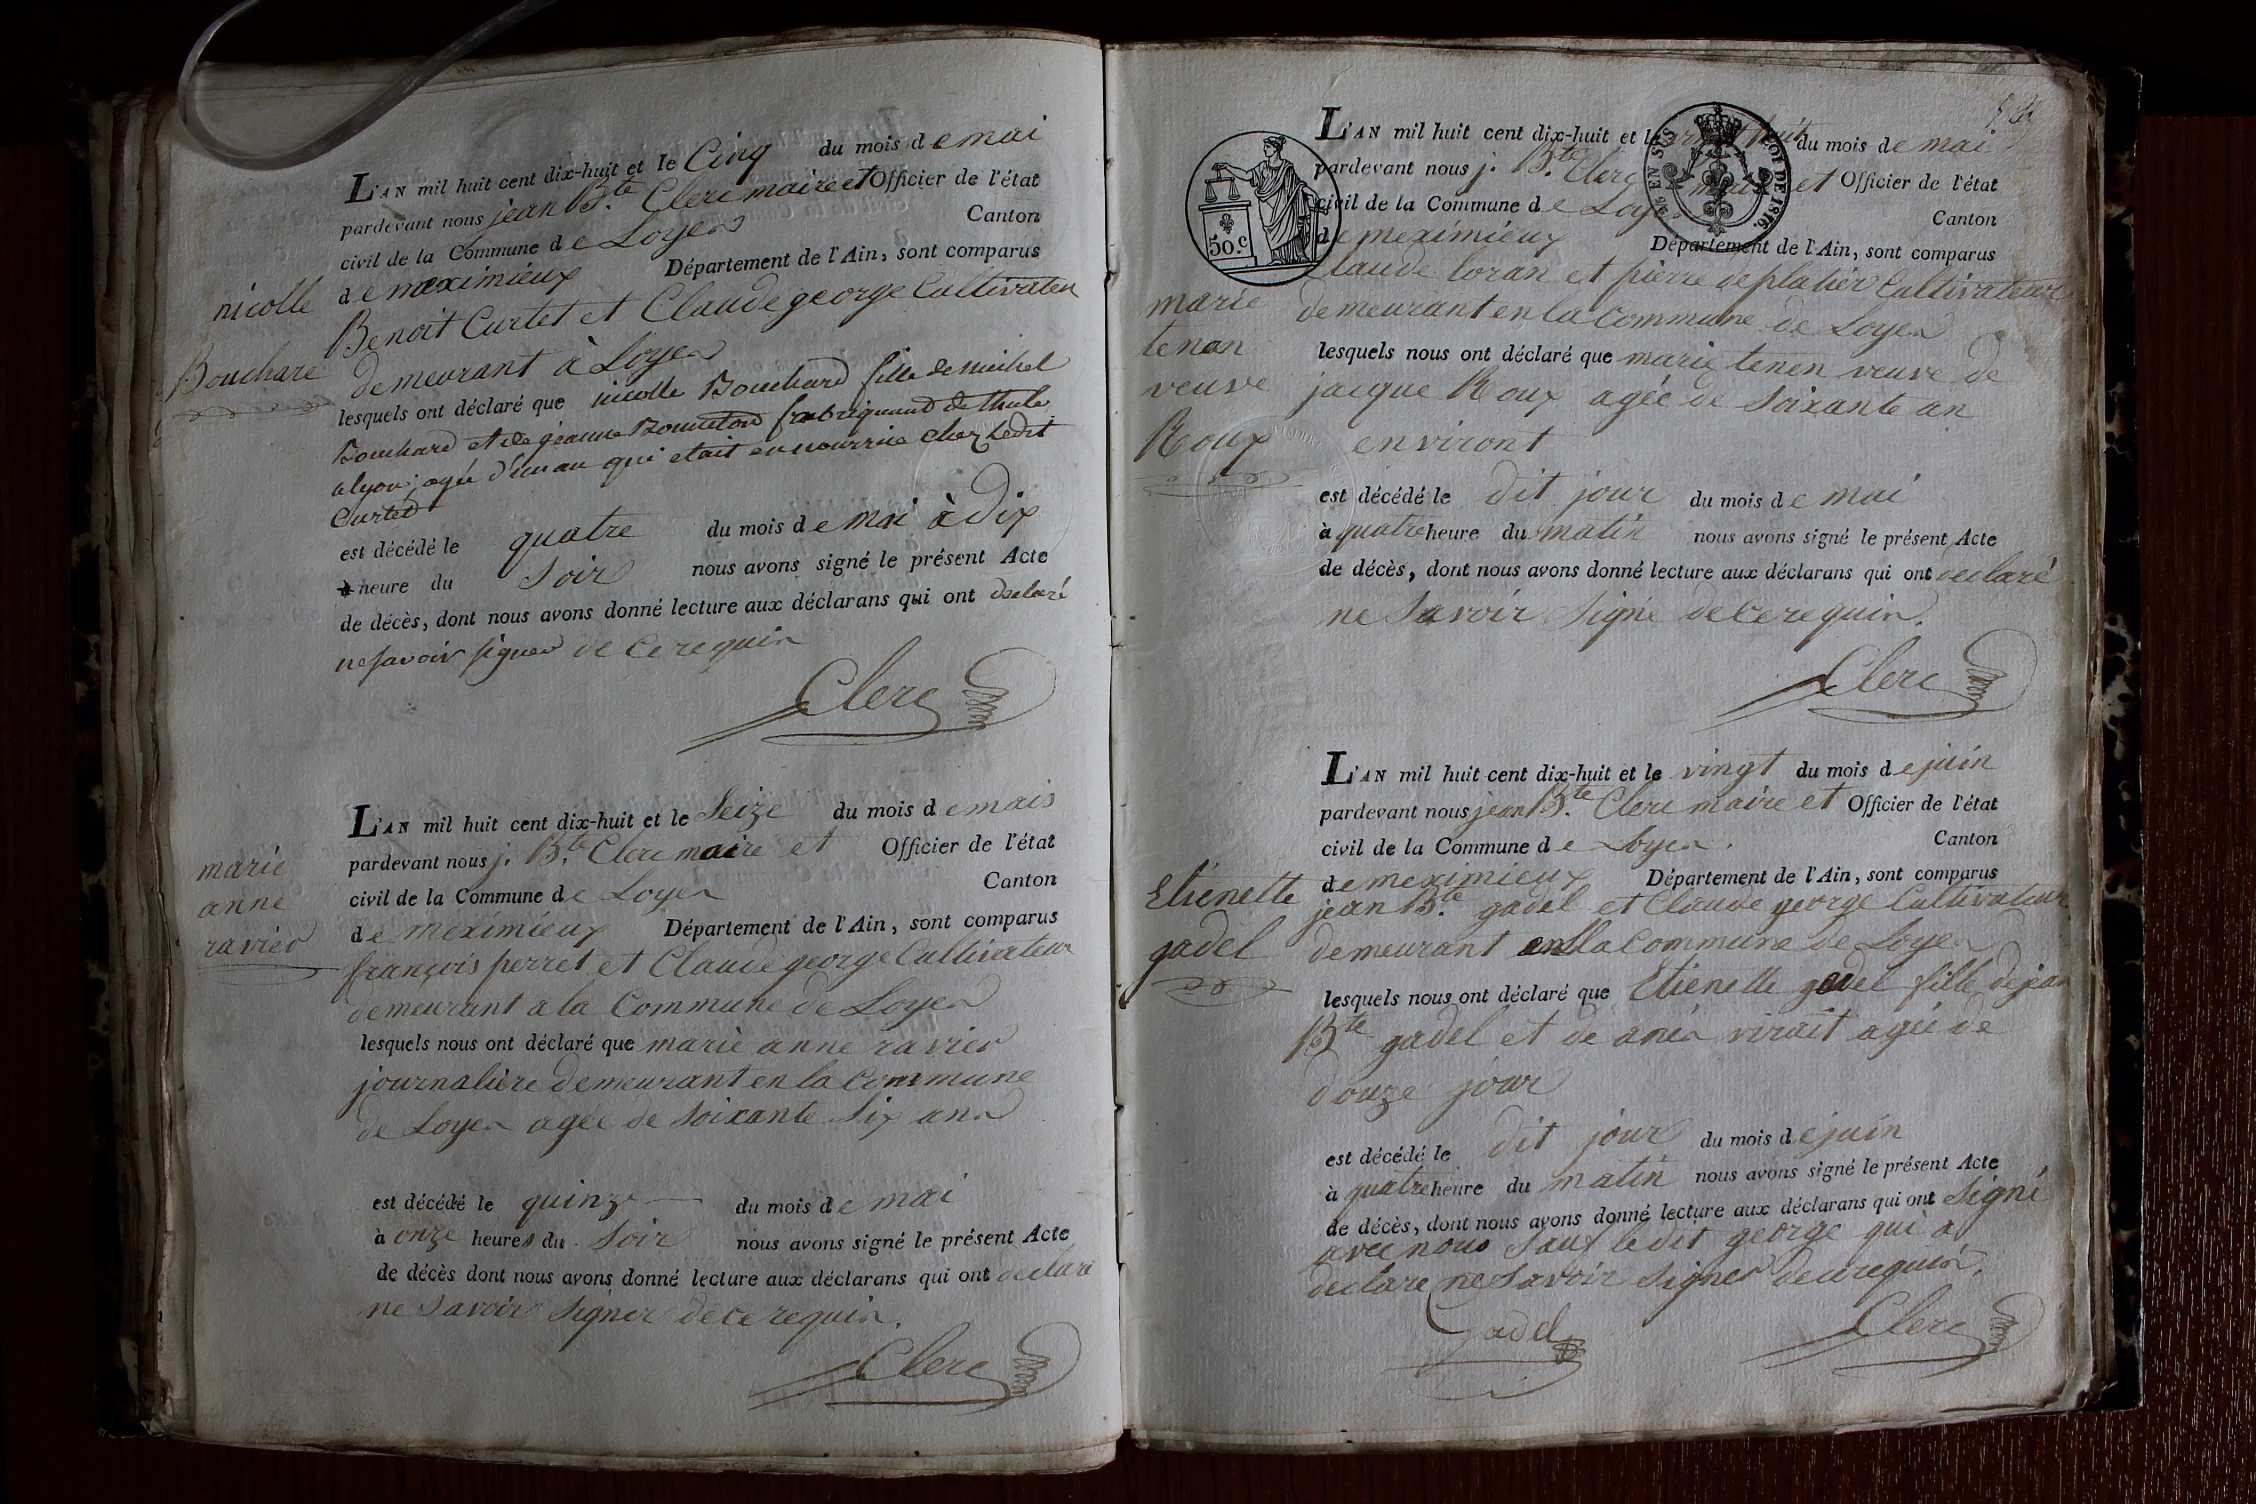 L'AN mil huit cent dix-huit et le Cinq du mois de mai
pardevant nous jean B.te Clerc maire et Officier de l'état
civil de la Commune de Loyes Canton
de meximieux Département de l'Ain, sont comparus
Benoit Curtet et Claude george Cultivateu
demeurant à Loyes
nicolle
Bouchare
lesquels ont déclaré que nicolle Bouchard fille de michel
Bouchard et de jeanne fabriquand de thule
a lyon; agée d'un an qui etait en nourrice chez ledit
Curtet
est décédé le quatre du mois de mai à dix
heure du Soir nous avons signé le présent Acte
de décès, dont nous avons donné lecture aux déclarans qui ont declaré
ne savoir signer de ce requis
Clerc
L'AN mil huit cent dix-huit et le Seize du mois de mais
pardevant nous j. B.te Clerc maire et Officier de l'état
civil de la Commune de Loyes Canton
de meximieux Département de l'Ain, sont comparus
françois perret et Claude george Cultivateur
demeurant a la Commune de Loyes
marie
anne
ravier
lesquels nous ont déclaré que marie anne ravier
journalière demeurant en la Commune
de Loyes agée de soixante Six ans
est décédé le quinze du mois de mai
à onze heures du Soir nous avons signé le présent Acte
de décès dont nous avons donné lecture aux déclarans qui ont declaré
ne Savoir Signer de ce requis.
Clerc
L'AN mil huit cent dix-huit et le huit du mois de mai
pardevant nous j. B.te Clerc maire et Officier de l'état
civil de la Commune de Loyes Canton
de meximieux Département de l'Ain, sont comparus
Claude loran et pierre deplatier Cultivateur
demeurant en la Commune de Loyes
50.c
EN SUS
LOI DE 1816.
marie
tenan
veuve
Roux
lesquels nous ont déclaré que marie tenen veuve de
jacque Roux agée de Soixante an
environt
est décédé le dit jour du mois de mai
à quatre heure du matin nous avons signé le présent Acte
de décès, dont nous avons donné lecture aux déclarans qui ont declaré
ne Savoir Signé de ce requis.
Clerc
L'AN mil huit cent dix-huit et le vingt du mois de juin
pardevant nous jean B.te Clerc maire et Officier de l'état
civil de la Commune de Loyes. Canton
de meximieux Département de l'Ain, sont comparus
jean B.te gadel et Claude george Cultivateur
demeurant en la Commune de Loyes
Etienette
gadel
lesquels nous ont déclaré que Etienette gadel fille de jean
B.te gadel et de virait agée de
douze jour
est décédé le dit jour du mois de juin
à quatre heure du matin nous avons signé le présent Acte
de décès, dont nous avons donné lecture aux déclarans qui ont Signé
avec nous Sauf ledit george qui a
declare ne Savoir Signer de ce requis.
Gadel Clerc